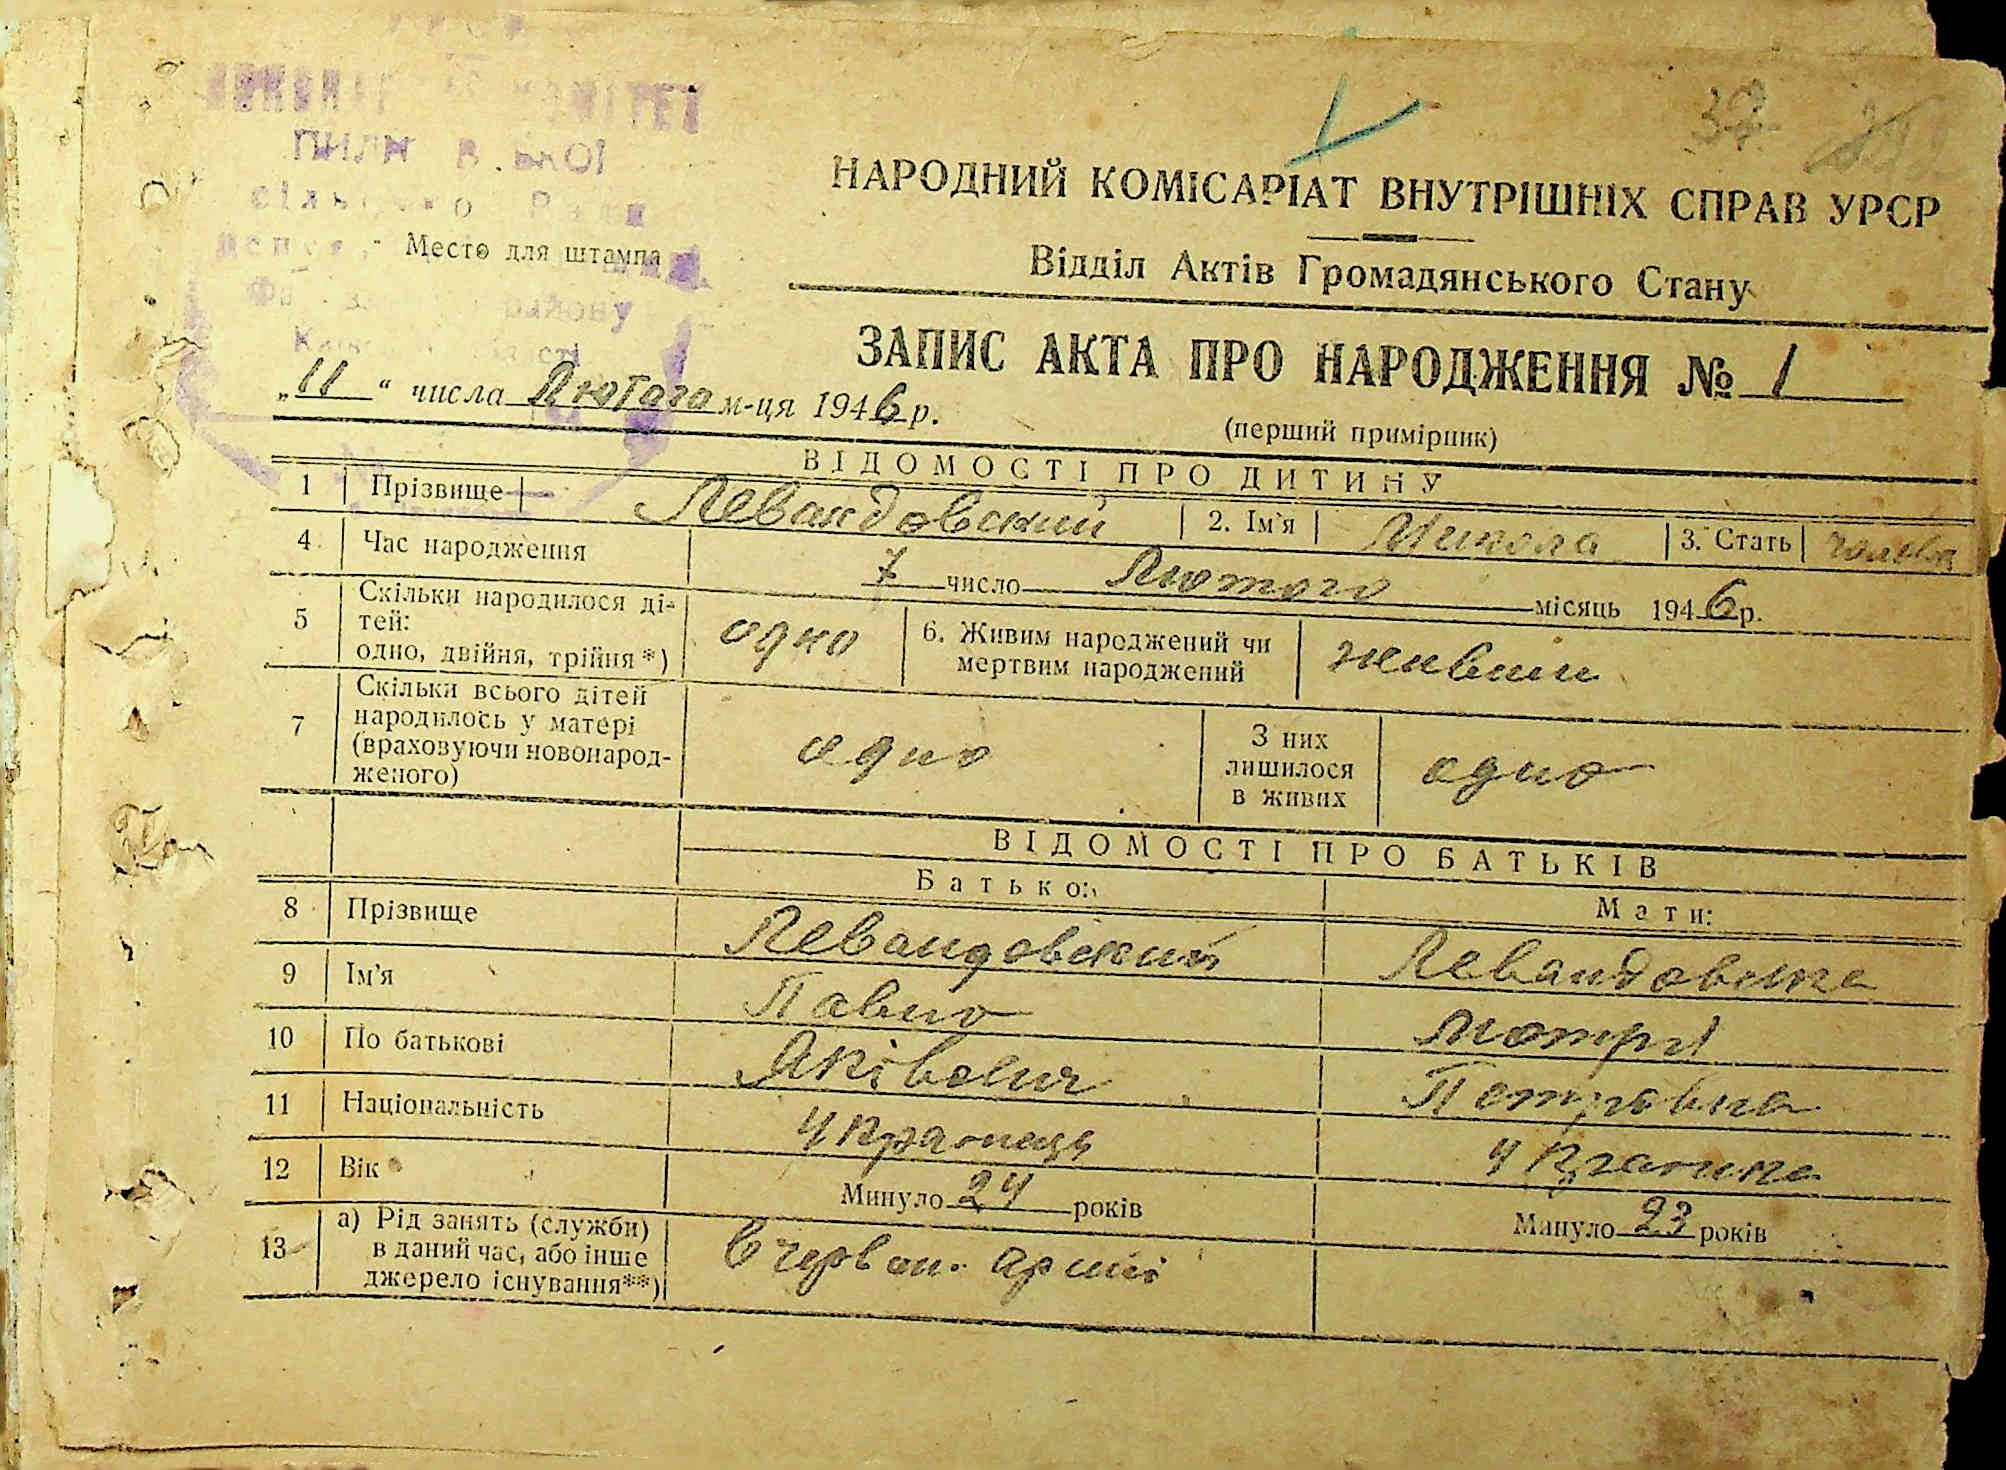 32
НАРОДНИЙ КОМІСАРІАТ ВНУТРІШНІХ СПРАВ УРСР
Відділ Актів Громадянського Стану
сільсько Ради
Место для штампа
району
ЗАПИС АКТА ПРО НАРОДЖЕННЯ № 1
„11“ числа Лютого м-ця 1946 р.
(перший примірник)
ВІДОМОСТІ ПРО ДИТИНУ
1 Прізвище Левандовский 2. Ім'я Микола 3. Стать чоловіч
4 Час народження 7 число Лютого місяць 1946 р.
5 Скільки народилося ді-
тей:
одно, двійня, трійня*) одно 6. Живим народжений чи
мертвим народжений живим
7 Скільки всього дітей
народилось у матері
(враховуючи новонарод-
женого) одно З них
лишилося
в живих одно
ВІДОМОСТІ ПРО БАТЬКІВ
Батько: Мати:
8 Прізвище Левандовский Левандовска
9 Ім'я Павло Мотря
10 По батькові Яківович Петровна
11 Національність Українець Українка
12 Вік Минуло 24 років Минуло 23 років
13 а) Рід занять (служби)
в даний час, або інше
джерело існування**) В червон. армії